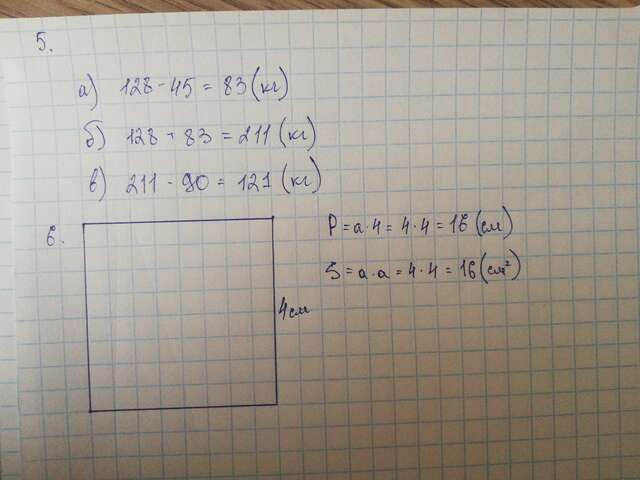 5.
а) 128 - 45 = 83 (кг)
б) 128 + 83 = 211 (кг)
в) 211 - 90 = 121 (кг)
6.
P = a · 4 = 4 · 4 = 16 (см)
S = a · a = 4 · 4 = 16 (см²)
4 см